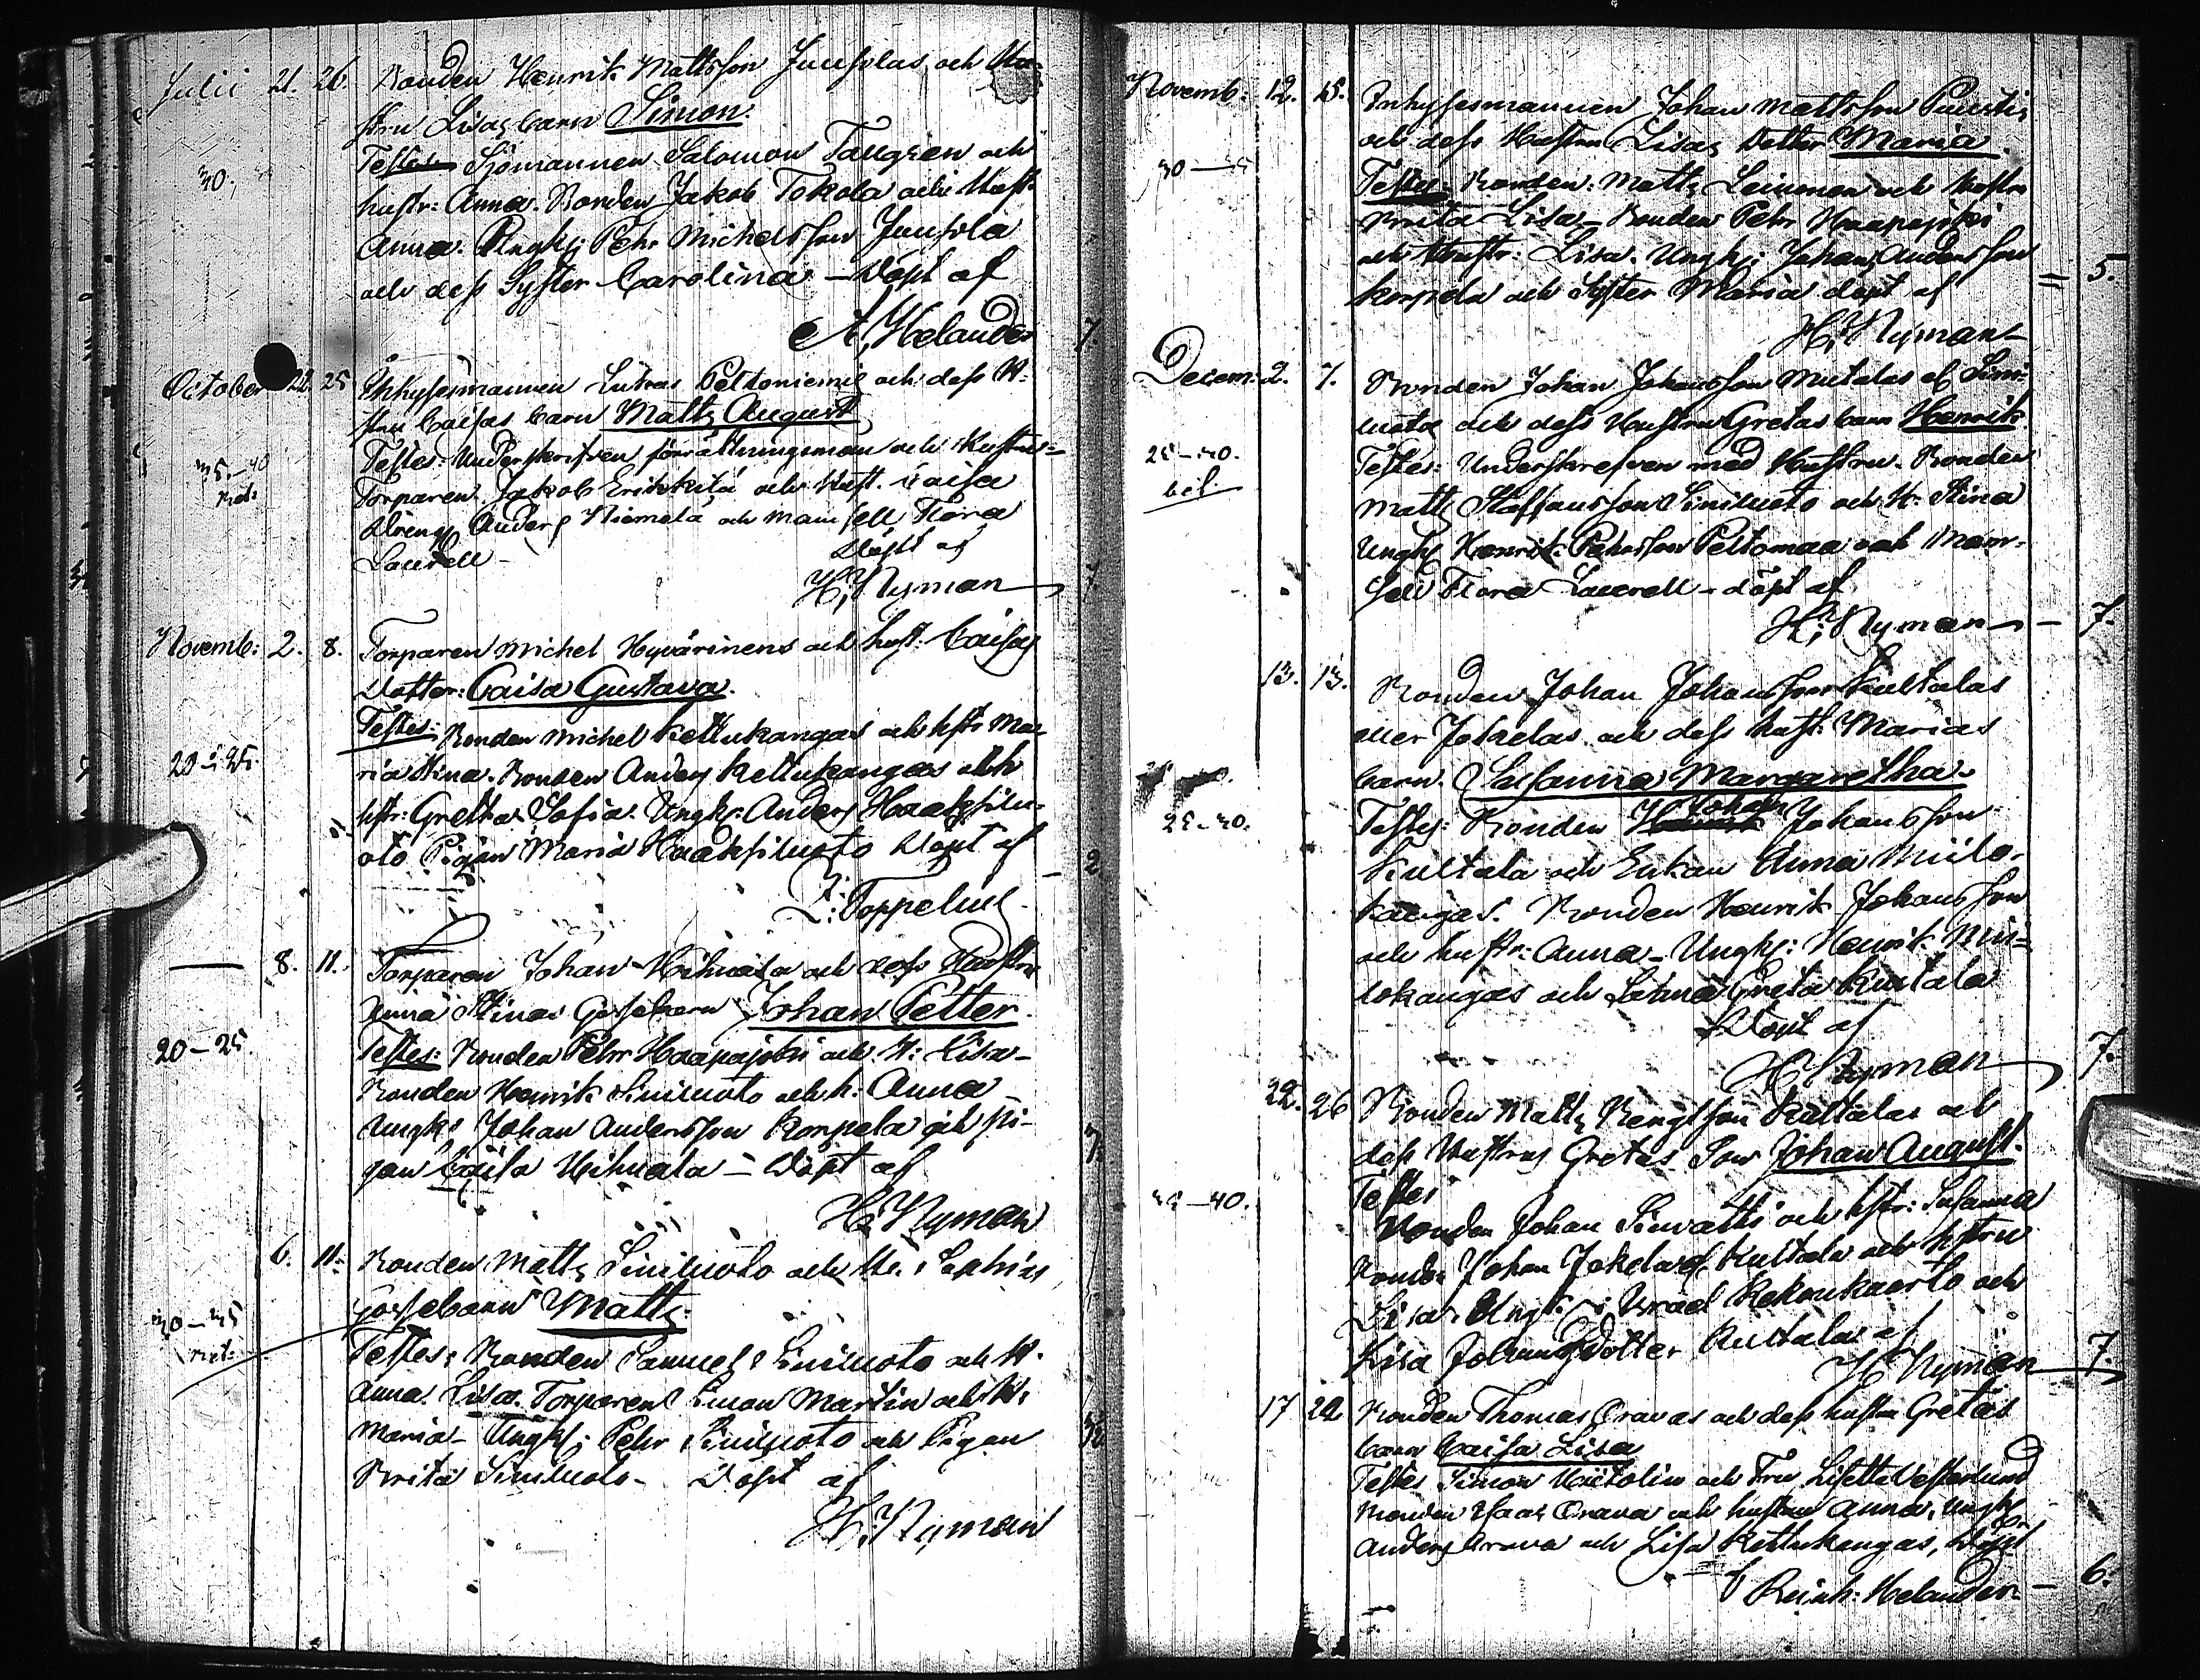 Julii 21. 26. Bonden Henrik Mattsson Junsolas och Hu-
stru Lisas barn Simon.
Testes Sjömannen Salomon Tangren och
30. hustr: Anna. Bonden Jakob Tokola och Hust.
Anna. Ungk: Pehr Michelsson Junsola
och dess Syster Carolina - Döpt af
A, Helander 7.
October 22. 25 Inhysesmannen Lukas Peltoniemis och dess H-
stru Caisas barn Matts August
35-40 Testes: Underskrifven förrättningsman och Hustru-
Torparen Jakob Erikkilä och Hust. Caisa
Dreng Anders Niemelä och Mamsell Flora
Laurell - Döpt af
H; Nyman 7.
Novemb: 2. 8. Torparen Michel Hyvärinens och hust: Caisas
Dotter: Caisa Gustava.
Testes: Bonden Michel Kettukangas och hstr Ma-
20 - 25. ria Stina. Bonden Anders Kettukangas och
hstr: Gretha Sofia. Ungk: Anders Haaksilu-
oto Pigan Maria Haaksiluoto Döpt af
Z: Toppelius - 2
8. 11. Torparen Johan Hihnala och dess Hustru
Anna Stinas Gossebarn Johan Petter.
20-25. Testes: Bonden Pehr Haapajoki och H: Lisa-
Bonden Henrik Siniluoto och h: Anna
Ungk: Johan Andersson Korpela och pi-
gan Caisa Hihnala - Döpt af 7.
H: Nyman
6. 11. Bonden Matts Siniluoto och H:
30-35 Gossebarn Matts.
Testes: Bonden Samuel Siniluoto och H.
Anna Lisa. Torparen Simon Martin och H:
Maria - Ungk; Pehr Siniluoto och Pigan
Brita Siniluoto - Döpt af
H. Nyman
Novemb: 12. 15. Inhysesmannen Johan Mattsson
och dess Hustru Lisas Dotter Maria.
Testes: Bonden Matts Leinonen och Hustru
Brita Lisa - Bonden Pehr Haapajoki
och Hustr: Lisa. Ungk: Johan Andersson
Korpela och Syster Maria döpt af = 5.
H; Nyman -
Decem: 2. 7. Bonden Johan Johansson af Sini-
luoto och dess Hustru Gretas barn Henrik
25-30. Testes: Underskrefven med Hustru. Bonden
Matts Staffansson Siniluoto och H. Stina
Ungk; Henrik Pehrsson Peltomaa och Mam-
sell Flora Laurell - döpt af
H; Nyman - 7.
13. 13. Bonden Johan Johansson Kultalas
Jokelas och dess hust: Marias
barn. Susanna Margaretha.
25-30. Testes: Bonden Johan Johansson
Kultala och Enkan Anna Miilo-
kangas. Bonden Henrik Johansson
och hustr: Anna - Ungk: Henrik Mii-
lokangas och Greta Kultala
Döpt af
H Nyman 7.
22. 26 Bonden Matts Bengtson Kultalas och
dess Hustrus Gretas Son Johan August.
Testes
35-40. Bonden Johan och hstr: Susanna
Bonden Johan Jokela Kultala och hstru
Lisa. Ungk: Israel och
Lisa Johansdotter Kultala af
H Nyman 7.
17 22 Bonden Thomas Oravas och dess hustru Gretas
barn Caisa Lisa
Testes Simon och Fru Lisette Vesterlund
Bonden Isaac Orava och hustru Anna, Ungk
Anders Orava och Lisa Kettukangas, Döpt
af Reinh: Helander - 6.